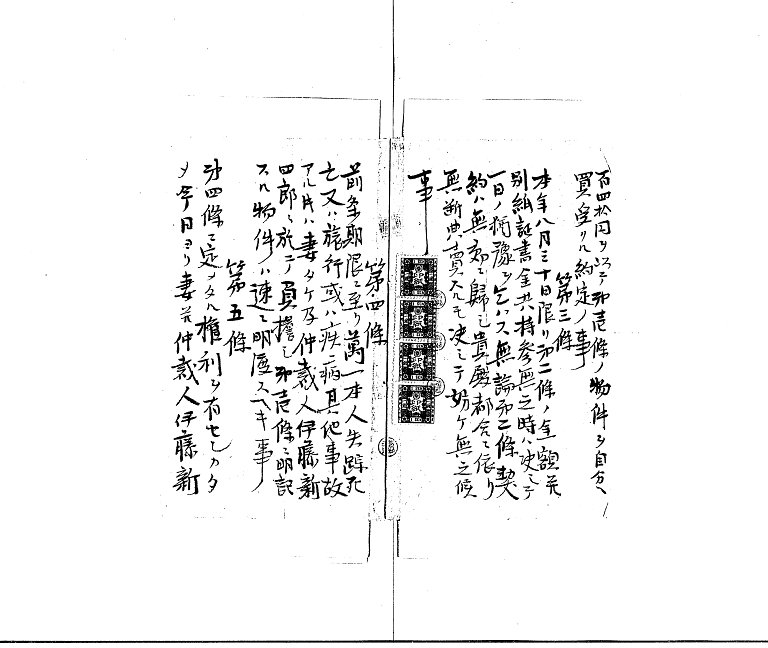 百四拾円ヲ以テ第壱條ノ物件ヲ自分ヘ
買戻ソル約定ノ事
第三條
本年八月三十日限リ第二條ノ金額並
別紙証書金共持参無之時ハ決シテ
一日ノ猶豫ヲ乞ハス無論第二條契
約ハ無効ニ歸シ貴殿都合ニ依リ
無断典賣スルモ決シテ妨ケ無之候
事
第四條
前条期限ニ至リ萬一本人失踪死
亡又ハ旅行或ハ疾病其他事故
アル片ハ妻タケ及仲裁人伊藤新
四郎ニ於テ負擔シ第壱條ニ明記
スル物件ハ速ニ明渡スヘキ事
第五條
第四條ニ定メタル権利ヲ有セシカタ
メ今日ヨリ妻並仲裁人伊藤新